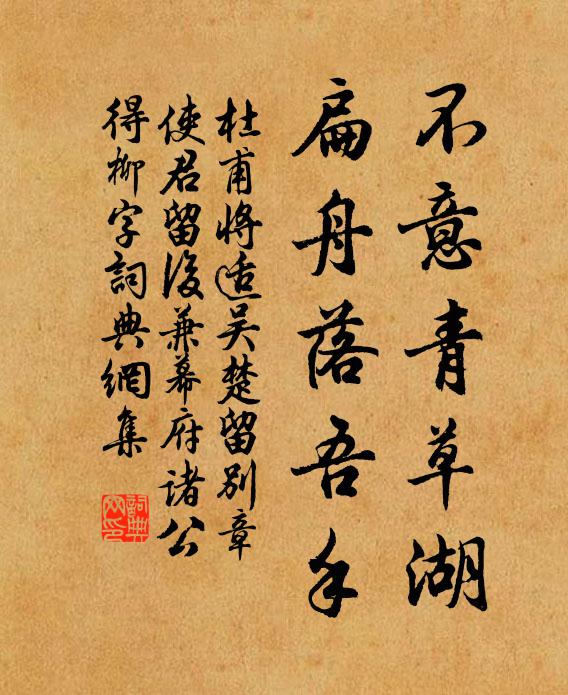 不意青草湖
扁舟落吾手
杜甫將适吴楚留别章
使君留後兼幕府諸公
得柳字詞典網集
詞典網印